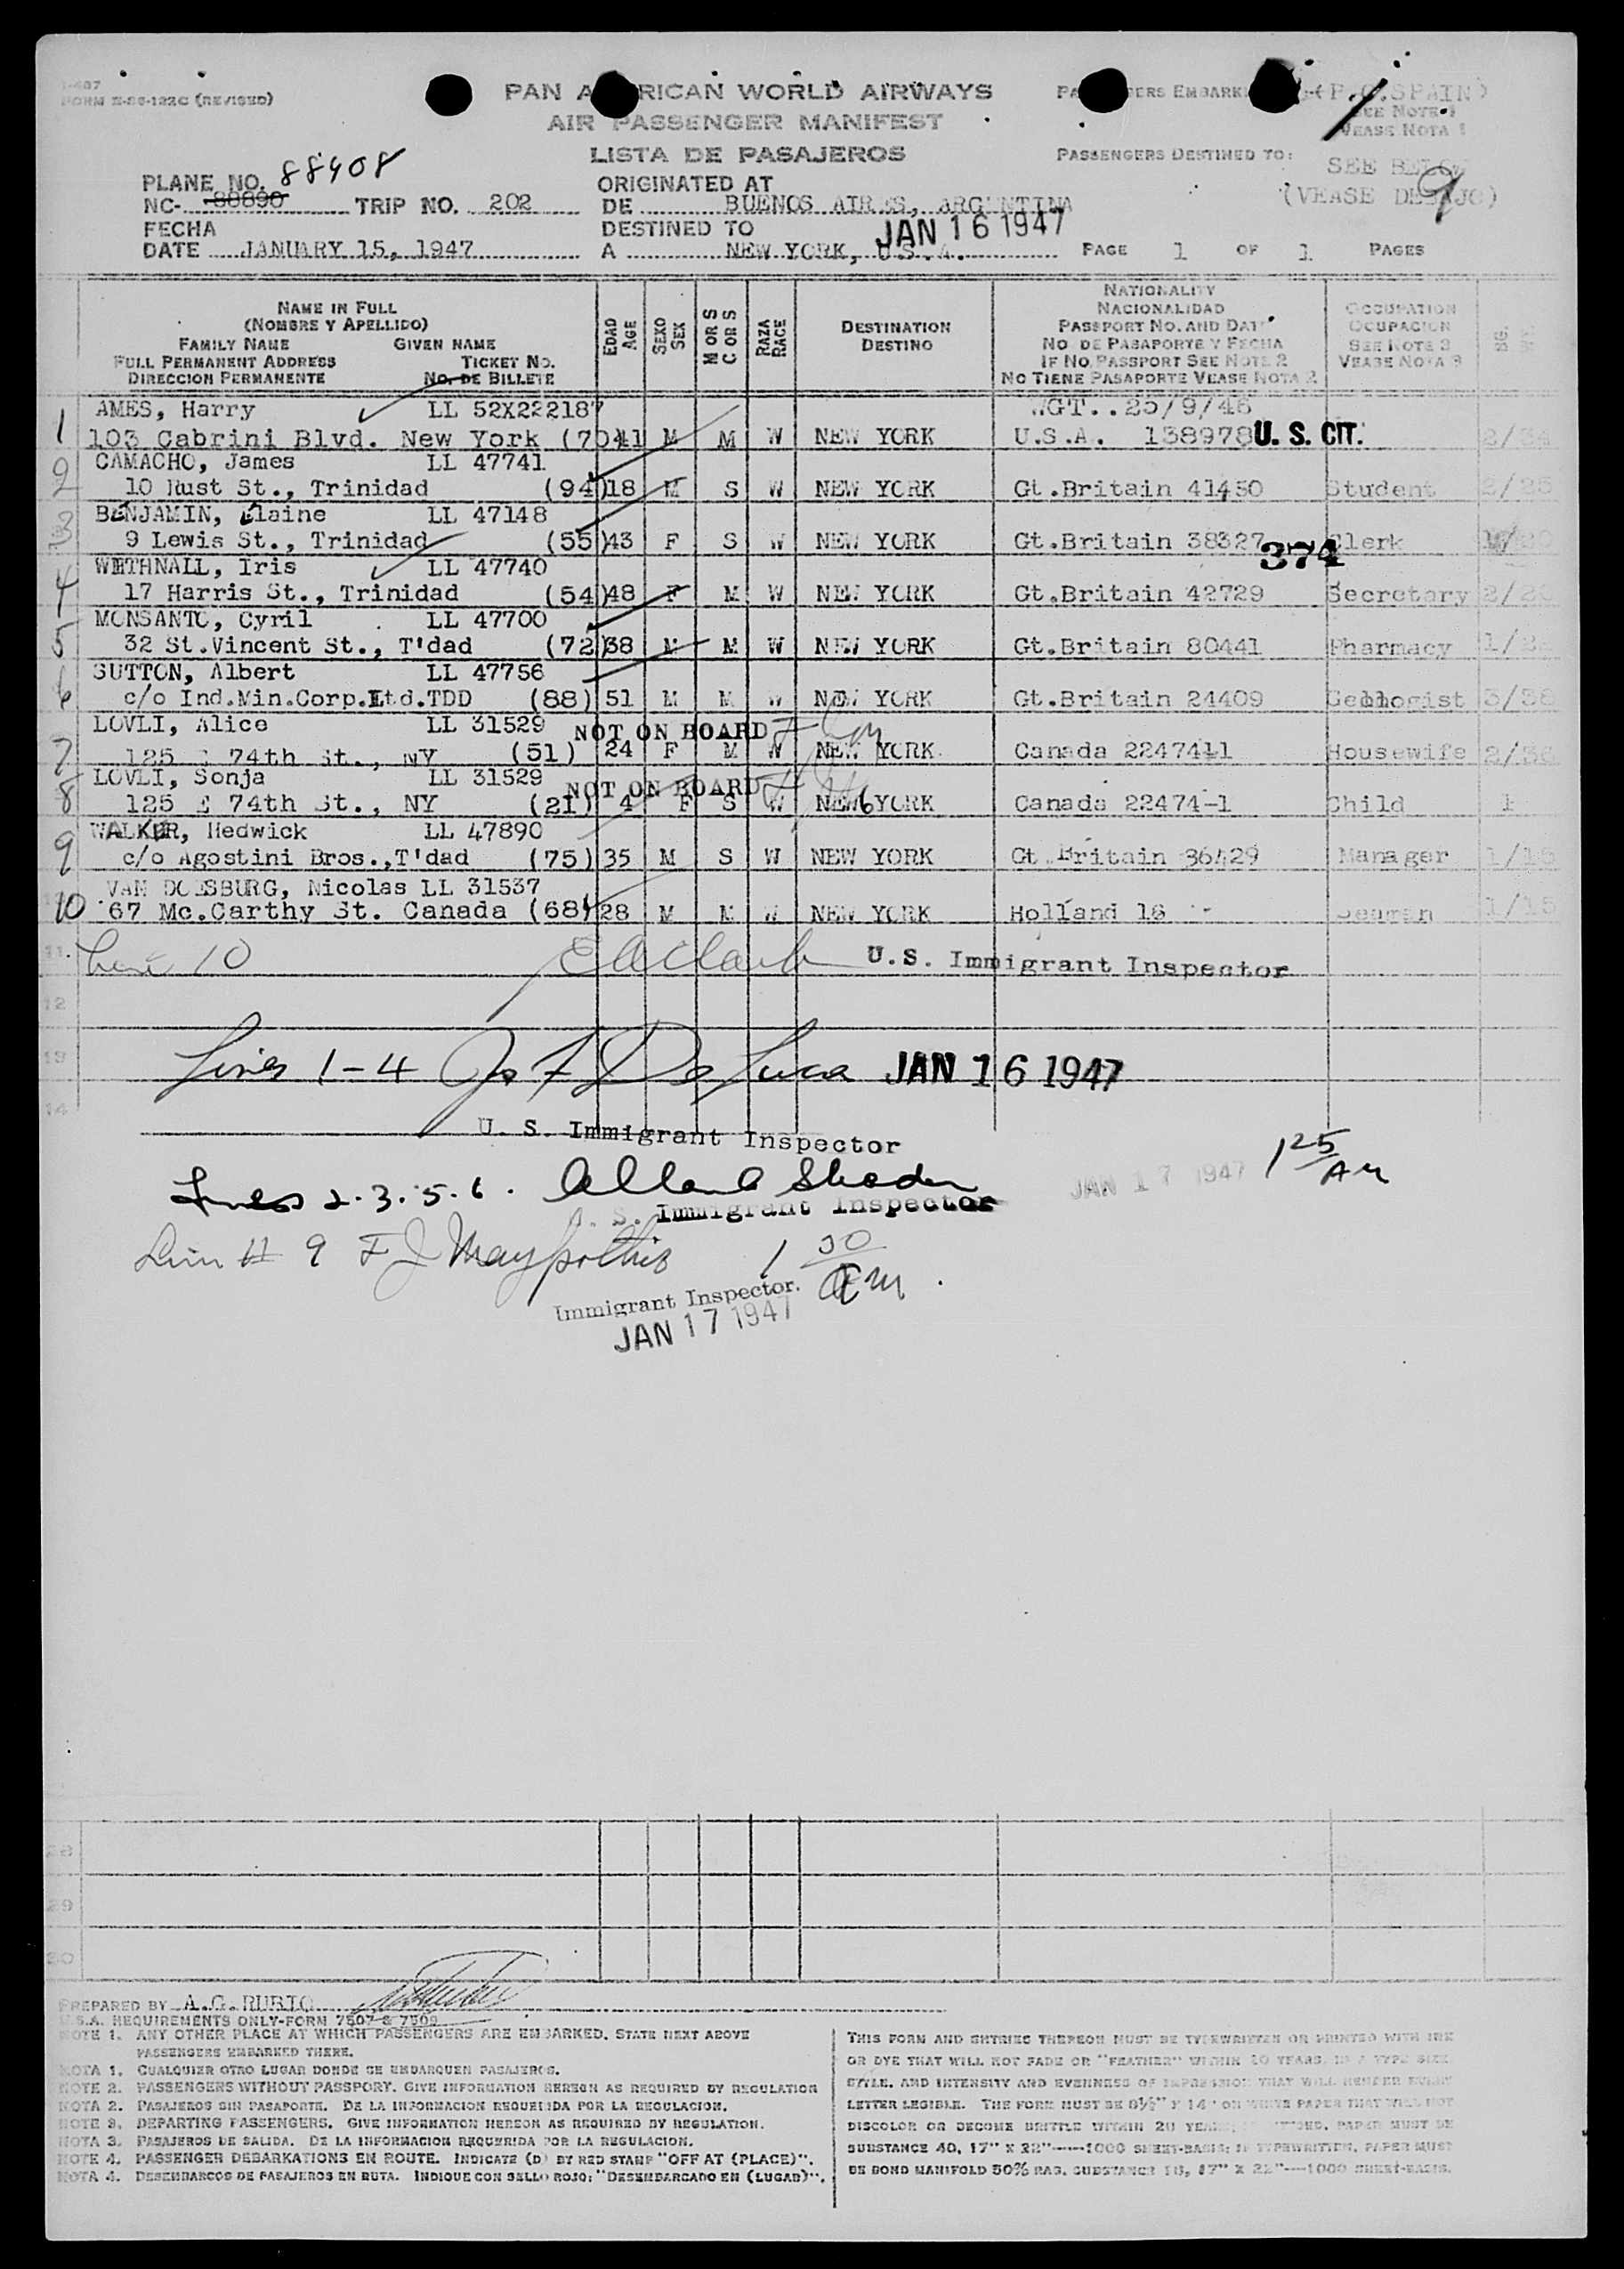 I-487
FORM E-86-122C (REVISED)
PAN A RICAN WORLD AIRWAYS
AIR PASSENGER MANIFEST
LISTA DE PASAJEROS
PASSENGERS EMBARK (P.O.SPAIN)
SEE NOTE 1
VEASE NOTA 1
PASSENGERS DESTINED TO:
SEE BELOW
(VEASE DEBAJO)
9
PLANE NO. 88408
NC- 88890 TRIP NO. 202
FECHA
DATE JANUARY 15, 1947
ORIGINATED AT
DE BUENOS AIRES, ARGENTINA
DESTINED TO JAN 16 1947
A NEW YORK, U.S.A.
PAGE 1 OF 1 PAGES
NAME IN FULL
(NOMBRE Y APELLIDO)
FAMILY NAME GIVEN NAME
FULL PERMANENT ADDRESS TICKET NO.
DIRECCION PERMANENTE NO. DE BILLETE
EDAD AGE
SEXO SEX
M OR S C OR S
RAZA RACE
DESTINATION
DESTINO
NATIONALITY
NACIONALIDAD
PASSPORT NO. AND DATE
NO DE PASAPORTE Y FECHA
IF NO PASSPORT SEE NOTE 2
NO TIENE PASAPORTE VEASE NOTA 2
OCCUPATION
OCUPACION
SEE NOTE 3
VEASE NOTA 3
1 AMES, Harry LL 52X222187 WGT..25/9/46
103 Cabrini Blvd. New York (70) 41 M M W NEW YORK U.S.A. 138978 U. S. CIT. 2/34
2 CAMACHO, James LL 47741
10 Rust St., Trinidad (94) 18 M S W NEW YORK Gt.Britain 41450 Student 2/25
3 BENJAMIN, Elaine LL 47148
9 Lewis St., Trinidad (55) 43 F S W NEW YORK Gt.Britain 38327 374 Clerk
4 WETHNALL, Iris LL 47740
17 Harris St., Trinidad (54) 48 F M W NEW YORK Gt.Britain 42729 Secretary
5 MONSANTO, Cyril LL 47700
32 St.Vincent St., T'dad (72) 38 M M W NEW YORK Gt.Britain 80441 Pharmacy
6 SUTTON, Albert LL 47756
c/o Ind.Min.Corp.Ltd.TDD (88) 51 M M W NEW YORK Gt.Britain 24409 Geologist 3/38
7 LOVLI, Alice LL 31529 NOT ON BOARD
125 E 74th St., NY (51) 24 F M W NEW YORK Canada 22474-1 Housewife 2/36
8 LOVLI, Sonja LL 31529 NOT ON BOARD
125 E 74th St., NY (21) 4 F S W NEW YORK Canada 22474-1 Child 1
9 WALKER, Hedwick LL 47890
c/o Agostini Bros.,T'dad (75) 35 M S W NEW YORK Gt.Britain 36429 Manager 1/15
10 VAN DOESBURG, Nicolas LL 31537
67 Mc.Carthy St. Canada (68) 28 M M W NEW YORK Holland 16 Seaman 1/15
11. Line 10 E A Clark U.S. Immigrant Inspector
12
13 Lines 1-4 Jo F De Luca JAN 16 1947
14
U. S. Immigrant Inspector
Lines 2.3.5.6. JAN 17 1947 1 25 AM
U. S. Immigrant Inspector
Line # 9 F J 1 30 am.
Immigrant Inspector.
JAN 17 1947
28
29
30
PREPARED BY A.G. RUBIO
U.S.A. REQUIREMENTS ONLY-FORM 7507 & 7509
NOTE 1. ANY OTHER PLACE AT WHICH PASSENGERS ARE EMBARKED. STATE NEXT ABOVE
PASSENGERS EMBARKED THERE.
NOTA 1. CUALQUIER OTRO LUGAR DONDE SE EMBARQUEN PASAJEROS.
NOTE 2. PASSENGERS WITHOUT PASSPORT. GIVE INFORMATION HEREON AS REQUIRED BY REGULATION
NOTA 2. PASAJEROS SIN PASAPORTE. DE LA INFORMACION REQUERIDA POR LA REGULACION.
NOTE 3. DEPARTING PASSENGERS. GIVE INFORMATION HEREON AS REQUIRED BY REGULATION.
NOTA 3. PASAJEROS DE SALIDA. DE LA INFORMACION REQUERIDA POR LA REGULACION.
NOTE 4. PASSENGER DEBARKATIONS EN ROUTE. INDICATE (D) BY RED STAMP "OFF AT (PLACE)".
NOTA 4. DESEMBARCOS DE PASAJEROS EN RUTA. INDIQUE CON SELLO ROJO: "DESEMBARCADO EN (LUGAR)".
THIS FORM AND ENTRIES THEREON MUST BE TYPEWRITTEN OR PRINTED WITH INK
OR DYE THAT WILL NOT FADE OR "FEATHER" WITHIN 20 YEARS, IN A TYPE SIZE,
STYLE, AND INTENSITY AND EVENNESS OF IMPRESSION THAT WILL RENDER EVERY
LETTER LEGIBLE. THE FORM MUST BE 8½" X 14" ON WHITE PAPER THAT WILL NOT
DISCOLOR OR BECOME BRITTLE WITHIN 20 YEARS; IF PRINTED, PAPER MUST BE
SUBSTANCE 40, 17" X 22"----1000 SHEET-BASIS; IF TYPEWRITTEN, PAPER MUST
BE BOND MANIFOLD 50% RAG, SUBSTANCE 18, 17" X 22"----1000 SHEET-BASIS.